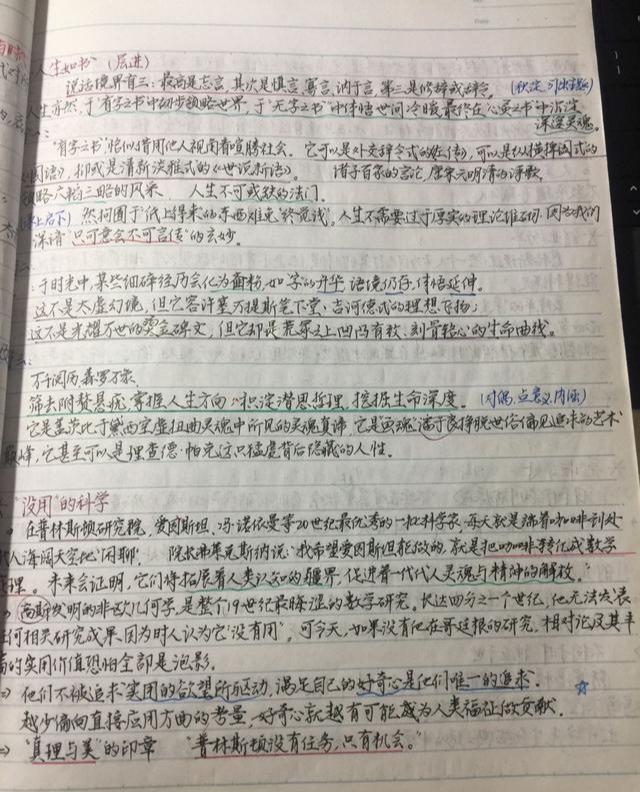 人生如书" (层进)
说话境界有三:最高是忘言,其次是慎言,寡言,讷于言,第三是修辞或辞令。
人生亦然,于"有字之书"中初步领略世界,于"无字之书"中体悟世间冷暖,最终在"心灵之书"中沉淀
深邃灵魂。
"有字之书"恰似借用他人视角看喧腾社会。它可以是外交辞令式的《左传》,可以是纵横捭阖式的
《国语》,抑或是清新淡雅式的《世说新语》。 诸子百家的言论,唐宋元明清的诗歌
领略六韬三略的风采, 人生不可或缺的法门。
(承上启下) 然拘囿于"纸上得来的东西难免"终觉浅"。人生不需要过于厚实的理论堆砌,因为我们
深谙"只可意会不可言传"的玄妙。
于时光中,某些细碎经历会化为面粉,如"字"的升华,语境仍存,体悟延伸。
这不是太虚幻境,但它容许塞万提斯笔下堂·吉诃德式的理想飞扬;
这不是光耀万世的碑文,但它却是荒冢之上凹凸有致、刻骨铭心的生命曲线。
于阅历森罗万象
筛去附赘悬疣,掌握人生方向,积淀潜思哲理,挖掘生命深度。 (对偶,点意义,内涵)
它是莫洛比于黛西空虚扭曲灵魂中所见的灵魂真谛,它是"画魂"潘于良挣脱世俗偏见追求的艺术
巅峰,它甚至可以是理查德·帕克这只猛虎背后隐藏的人性。
"没用"的科学
在普林斯顿研究院,爱因斯坦、冯·诺依曼等20世纪最优秀的一批科学家,每天就是端着咖啡到处
找人海阔天空地"闲聊"。 院长弗莱克斯纳说:"我希望爱因斯坦能做的,就是把咖啡转化成数学
定理。未来会证明,它们将拓展着人类认知的疆界,促进着一代代人灵魂与精神的解放。"
高斯发明的非欧几何学,是整个19世纪最晦涩的数学研究。长达四分之一个世纪,他无法发表
任何相关研究成果,因为时人认为它"没有用"。可今天,如果没有他在哥廷根的研究,相对论及其丰
富的实用价值恐怕全部是泡影。
=> 他们不被追求实用的欲望所驱动,满足自己的好奇心是他们唯一的追求。
越少偏向直接应用方面的考量,好奇心就越有可能成为人类福祉做贡献。
=> "真理与美"的印章 "普林斯顿没有任务,只有机会。"